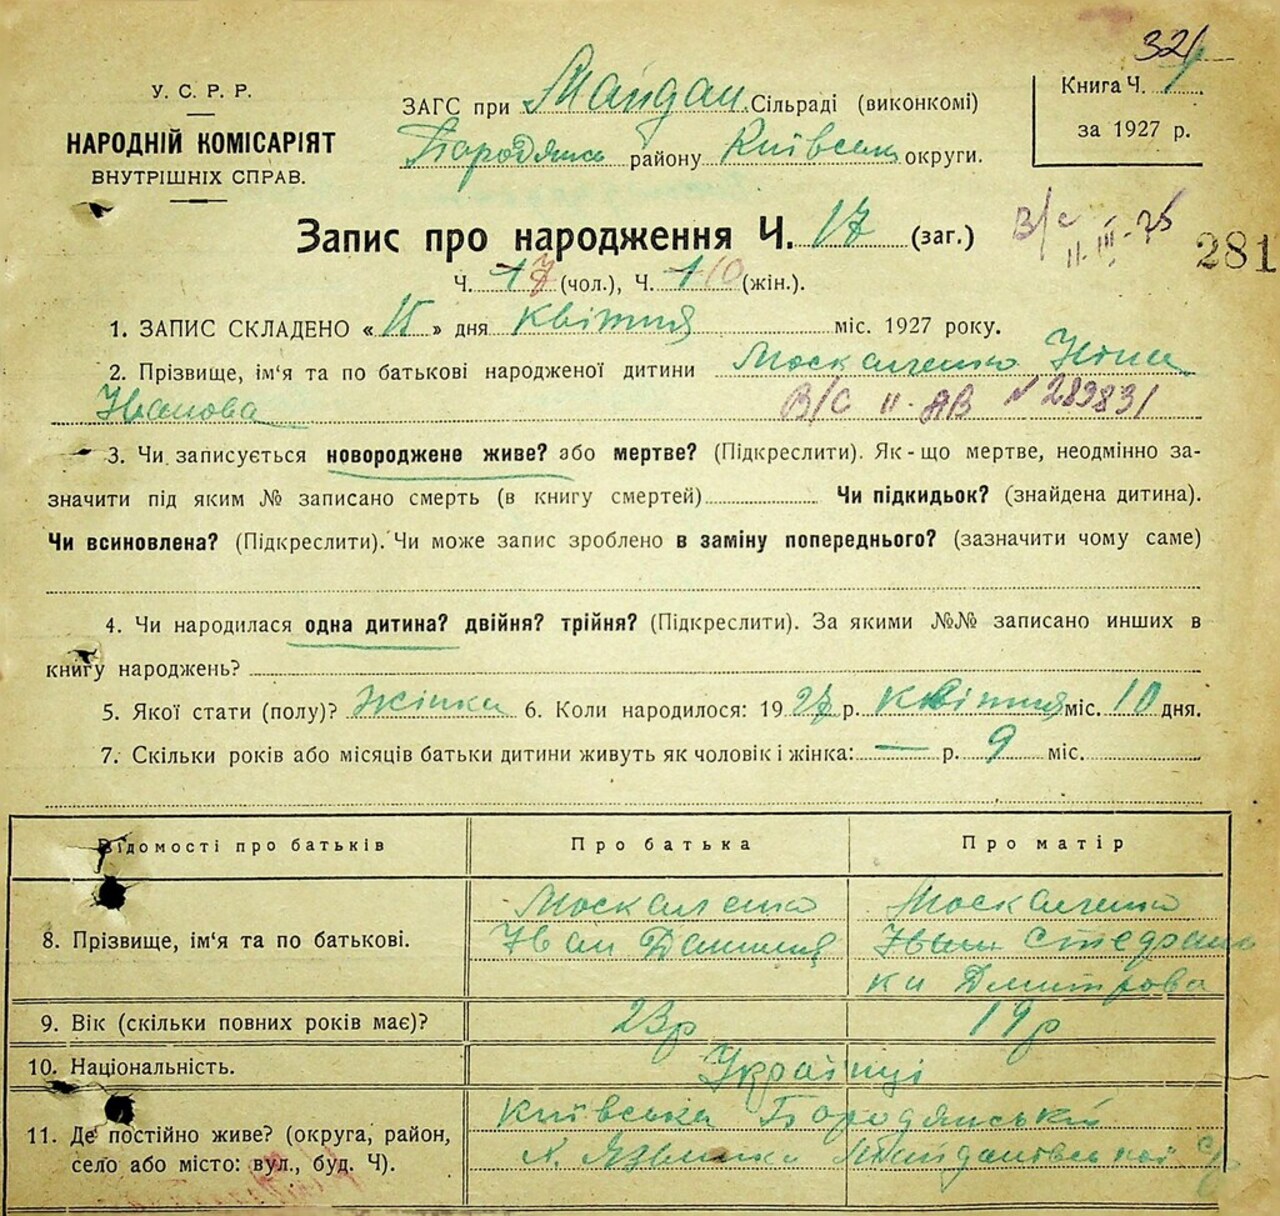 321
У. С. Р. Р.
НАРОДНІЙ КОМІСАРІЯТ
ВНУТРІШНІХ СПРАВ.
ЗАГС при Майдан Сільраді (виконкомі)
Бородянс району Київськ округи.
Книга Ч. 1
за 1927 р.
Запис про народження Ч. 17 (заг.)
В/с II-III-75
281
Ч. 17 (чол.), Ч. 110 (жін.).
1. ЗАПИС СКЛАДЕНО «15» дня Квітня міс. 1927 року.
2. Прізвище, ім‘я та по батькові народженої дитини Москаленко Ніна
Іванова В/С II-ЯВ № 289831
3. Чи записується новороджене живе? або мертве? (Підкреслити). Як-що мертве, неодмінно за-
значити під яким № записано смерть (в книгу смертей) Чи підкидьок? (знайдена дитина).
Чи всиновлена? (Підкреслити). Чи може запис зроблено в заміну попереднього? (зазначити чому саме)
4. Чи народилася одна дитина? двійня? трійня? (Підкреслити). За якими №№ записано инших в
книгу народжень?
5. Якої стати (полу)? Жінка 6. Коли народилося: 1927 р. Квітня міс. 10 дня.
7. Скільки років або місяців батьки дитини живуть як чоловік і жінка: — р. 9 міс.
Відомості про батьків Про батька Про матір
Москаленко Москаленко
8. Прізвище, ім‘я та по батькові. Іван Данилів Іван
Дмитрова
9. Вік (скільки повних років має)? 23р 19р
10. Національність. Українці
Київська Бородянській
11. Де постійно живе? (округа, район, х. Язвинка Майдановської с/р
село або місто: вул., буд. Ч).